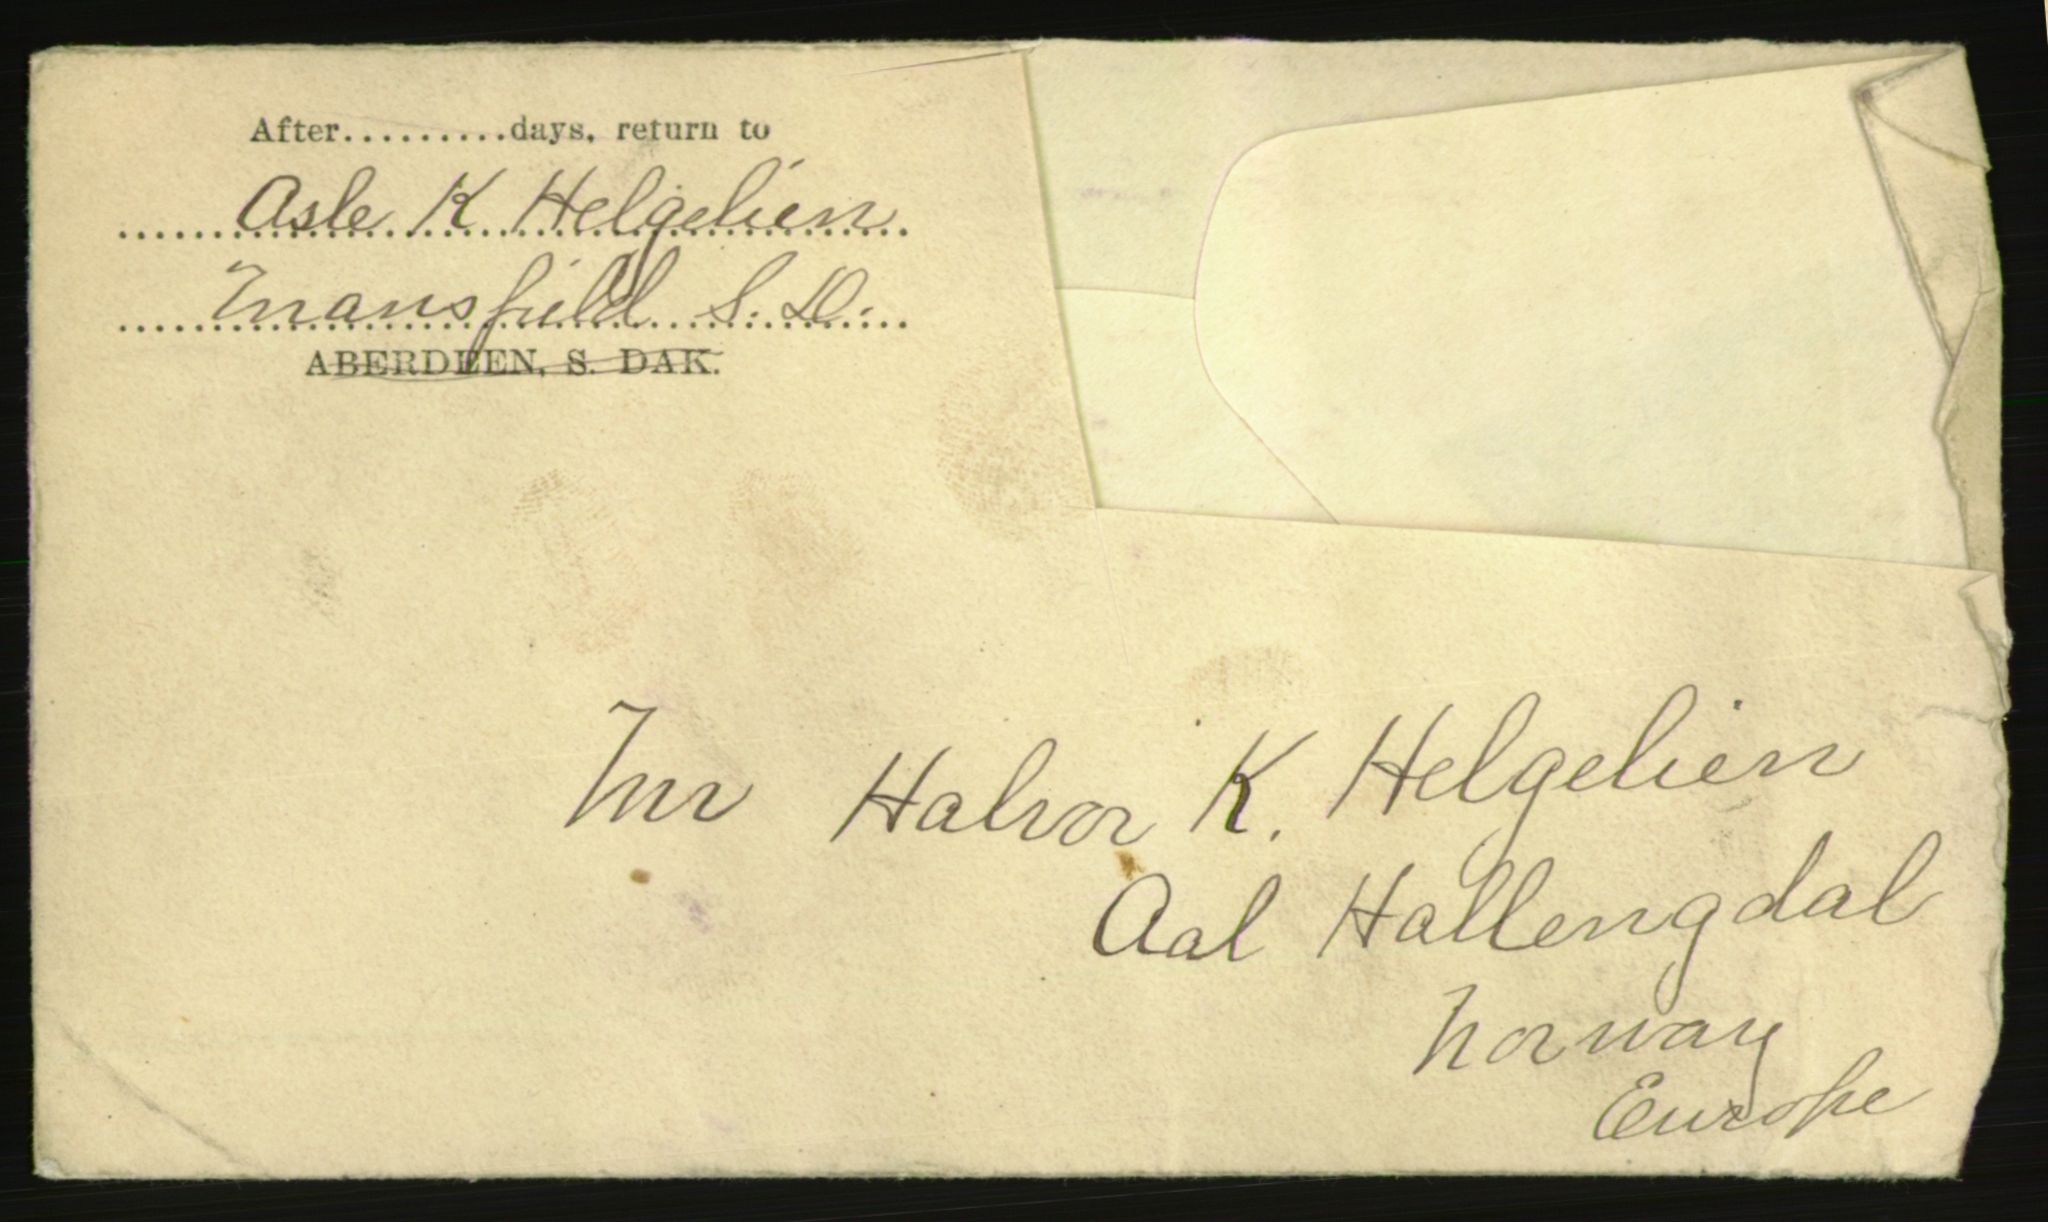 After.........days, return to
Asle K Helgelien
Mansfield S. D.
ABERDEEN, S. DAK.
Mr Halvor K. Helgelien
Aal Hallengdal
Norway
Europe